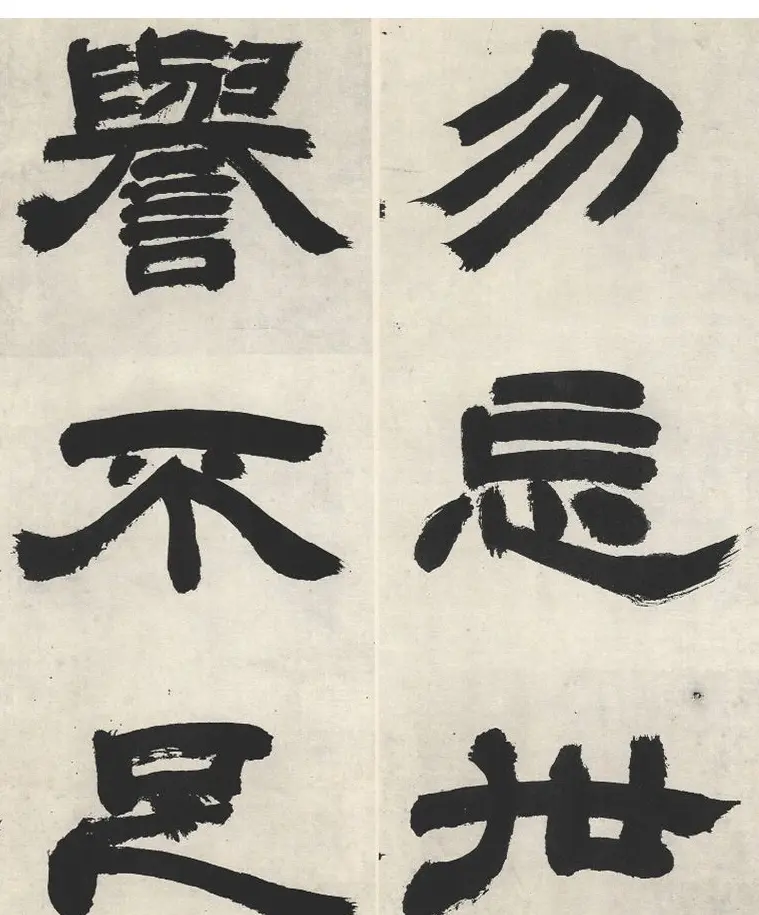 勿忘世
譽不足